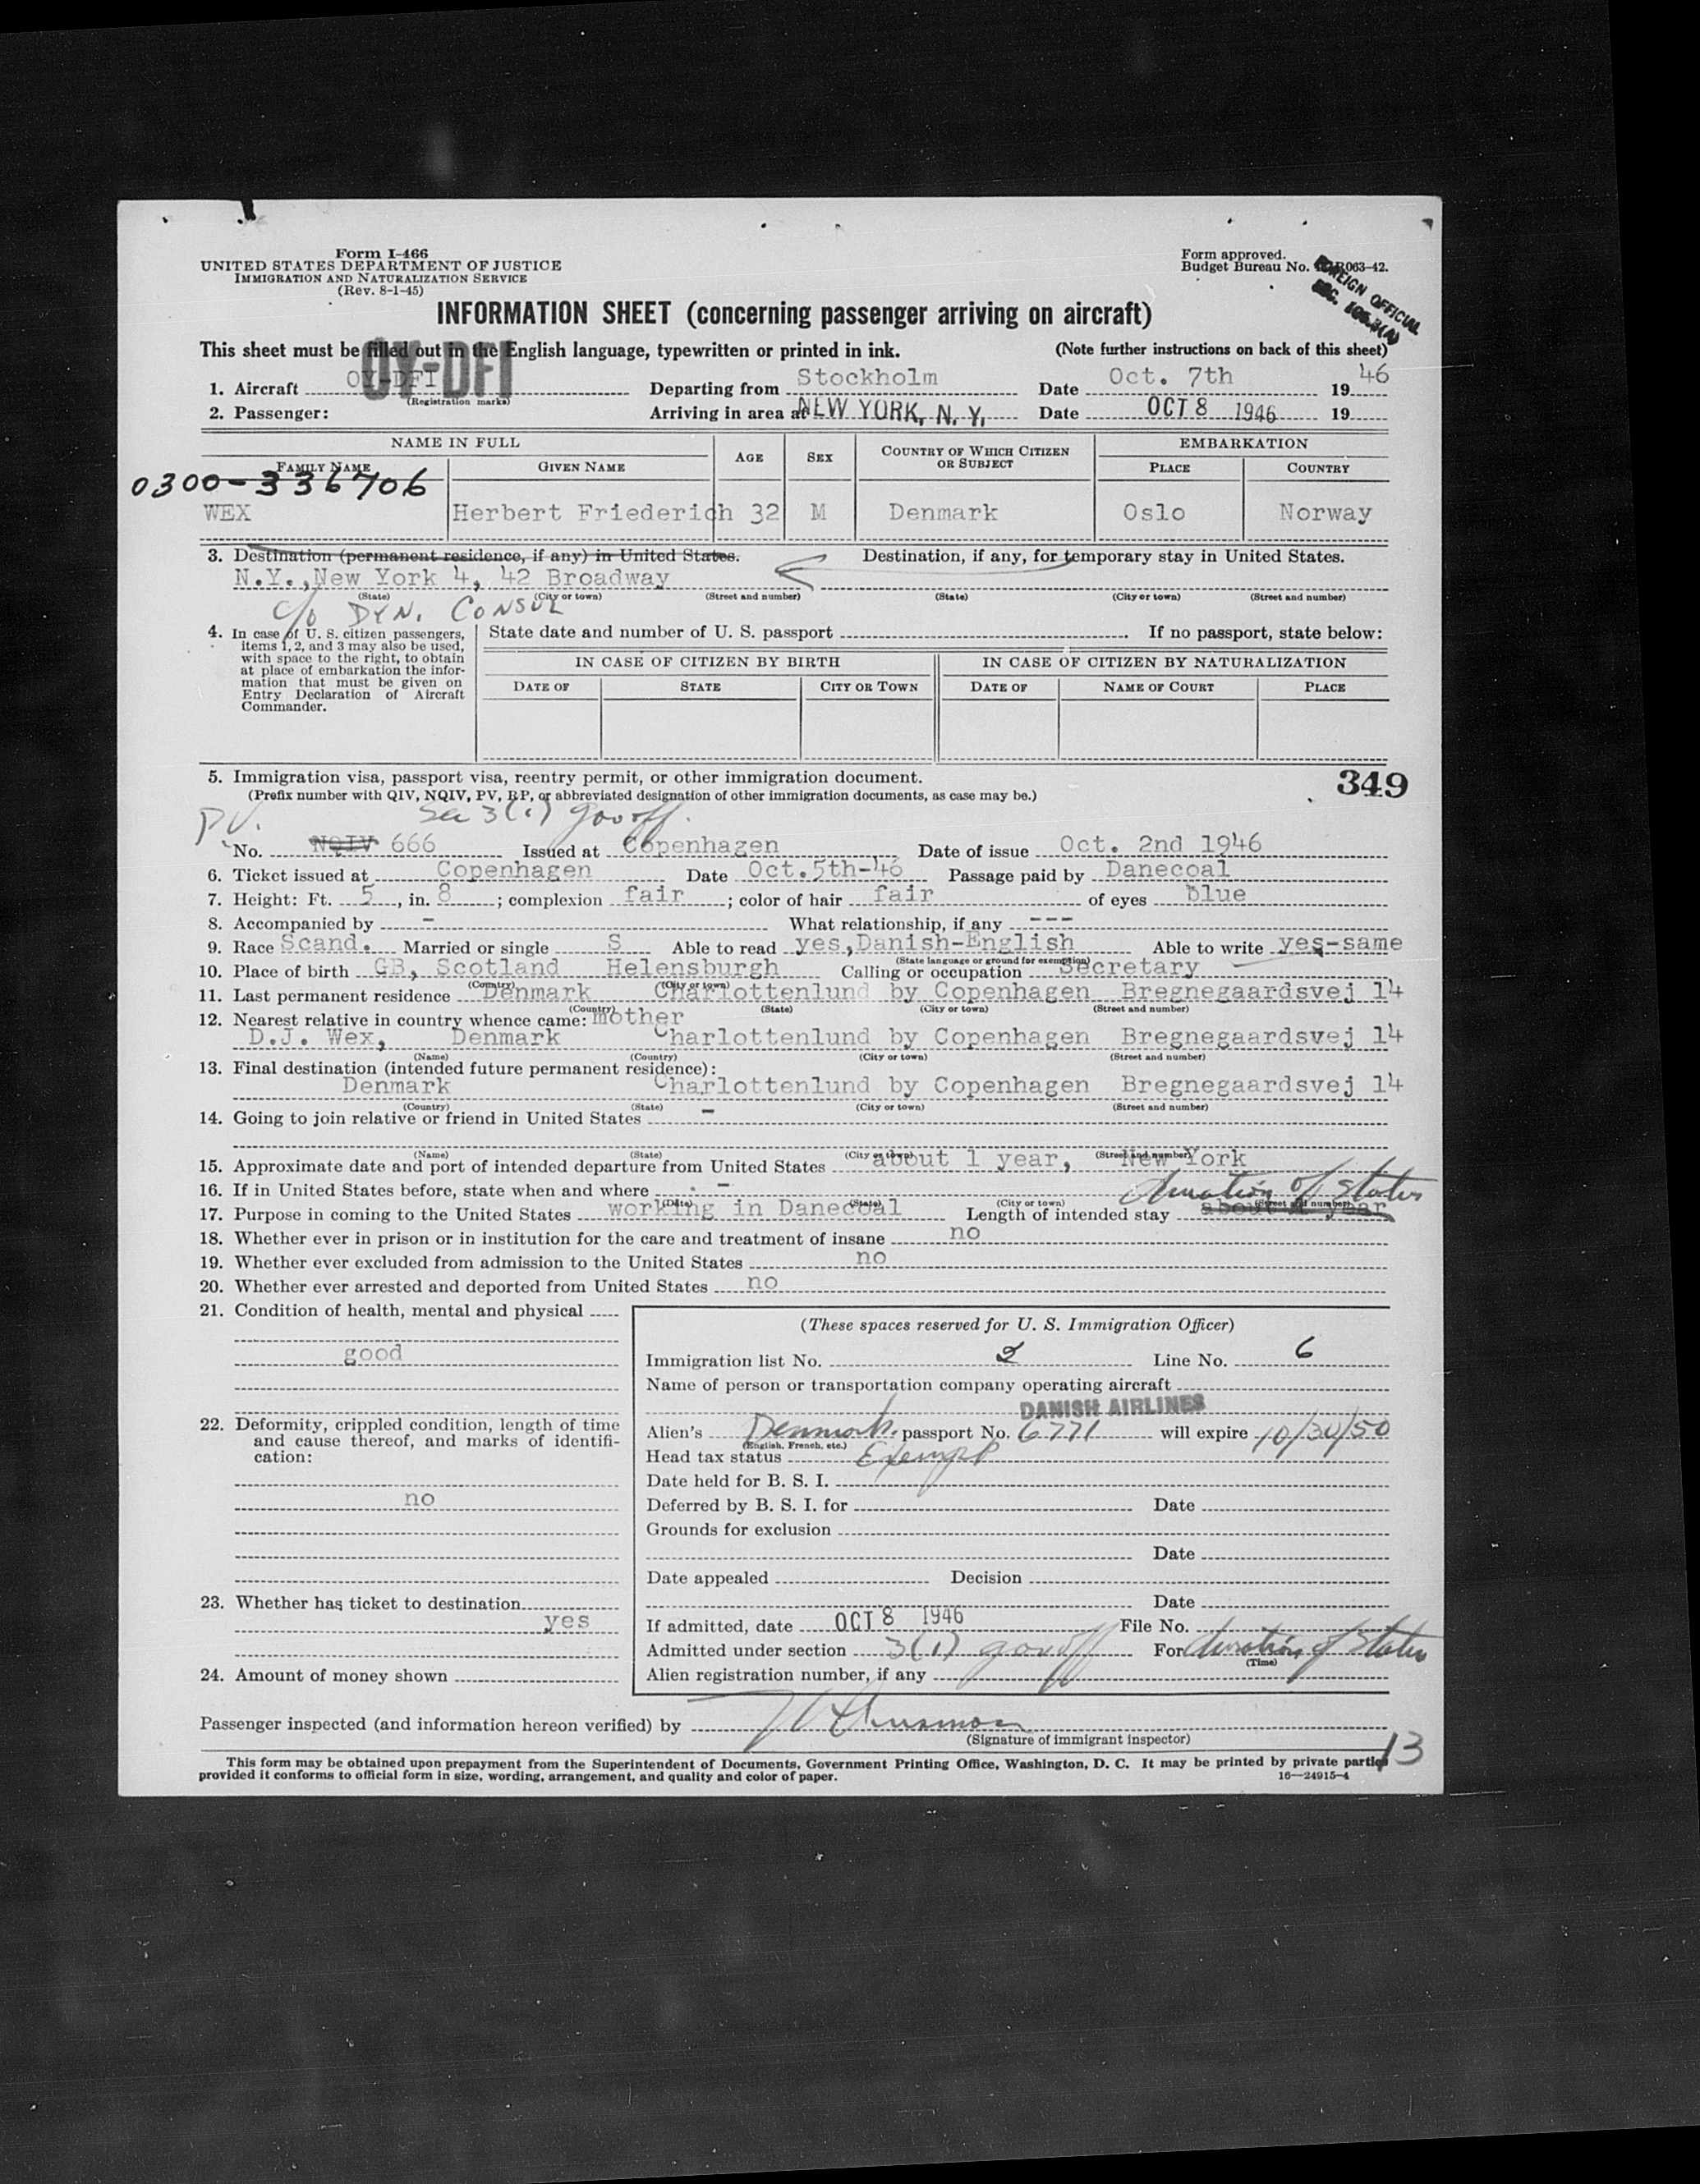 Form I-466
UNITED STATES DEPARTMENT OF JUSTICE
IMMIGRATION AND NATURALIZATION SERVICE
(Rev. 8-1-45)
Form approved.
Budget Bureau No. 063-42.
FOREIGN OFFICIAL
INFORMATION SHEET (concerning passenger arriving on aircraft)
This sheet must be filled out in the English language, typewritten or printed in ink. (Note further instructions on back of this sheet)
OY-DFI
1. Aircraft OY-DFI Departing from Stockholm Date Oct. 7th 1946
(Registration marks)
2. Passenger: Arriving in area at NEW YORK, N. Y. Date OCT 8 1946 19
NAME IN FULL AGE SEX COUNTRY OF WHICH CITIZEN OR SUBJECT EMBARKATION
FAMILY NAME GIVEN NAME PLACE COUNTRY
0300-336706
WEX Herbert Friederich 32 M Denmark Oslo Norway
3. Destination (permanent residence, if any) in United States. Destination, if any, for temporary stay in United States.
N.Y., New York 4, 42 Broadway
(State) (City or town) (Street and number) (State) (City or town) (Street and number)
c/o DYN. CONSUL
4. In case of U. S. citizen passengers, items 1, 2, and 3 may also be used, with space to the right, to obtain at place of embarkation the information that must be given on Entry Declaration of Aircraft Commander.
State date and number of U. S. passport If no passport, state below:
IN CASE OF CITIZEN BY BIRTH IN CASE OF CITIZEN BY NATURALIZATION
DATE OF STATE CITY OR TOWN DATE OF NAME OF COURT PLACE
5. Immigration visa, passport visa, reentry permit, or other immigration document. 349
(Prefix number with QIV, NQIV, PV, RP, or abbreviated designation of other immigration documents, as case may be.)
PV. Sec 3(1) gov off.
No. NQIV 666 Issued at Copenhagen Date of issue Oct. 2nd 1946
6. Ticket issued at Copenhagen Date Oct.5th-46 Passage paid by Danecoal
7. Height: Ft. 5, in. 8; complexion fair; color of hair fair of eyes blue
8. Accompanied by - What relationship, if any ---
9. Race Scand. Married or single S Able to read yes, Danish-English Able to write yes-same
(State language or ground for exemption)
10. Place of birth GB, Scotland Helensburgh Calling or occupation Secretary
(Country) (City or town)
11. Last permanent residence Denmark Charlottenlund by Copenhagen Bregnegaardsvej 14
(Country) (State) (City or town) (Street and number)
12. Nearest relative in country whence came: mother
D.J. Wex, Denmark Charlottenlund by Copenhagen Bregnegaardsvej 14
(Name) (Country) (City or town) (Street and number)
13. Final destination (intended future permanent residence):
Denmark Charlottenlund by Copenhagen Bregnegaardsvej 14
(Country) (State) (City or town) (Street and number)
14. Going to join relative or friend in United States -
(Name) (State) (City or town) (Street and number)
15. Approximate date and port of intended departure from United States about 1 year, New York
16. If in United States before, state when and where -
(Date) (State) (City or town) (Street and number)
duration of status
17. Purpose in coming to the United States working in Danecoal Length of intended stay about 1 year
18. Whether ever in prison or in institution for the care and treatment of insane no
19. Whether ever excluded from admission to the United States no
20. Whether ever arrested and deported from United States no
21. Condition of health, mental and physical
good
22. Deformity, crippled condition, length of time and cause thereof, and marks of identification:
no
23. Whether has ticket to destination
yes
24. Amount of money shown
(These spaces reserved for U. S. Immigration Officer)
Immigration list No. 2 Line No. 6
Name of person or transportation company operating aircraft
DANISH AIRLINES
Alien's Denmark passport No. 6771 will expire 10/30/50
(English, French, etc.)
Head tax status Exempt
Date held for B. S. I.
Deferred by B. S. I. for Date
Grounds for exclusion
Date
Date appealed Decision
Date
If admitted, date OCT 8 1946 File No.
Admitted under section 3(1) gov off For duration of status
(Time)
Alien registration number, if any
Passenger inspected (and information hereon verified) by
(Signature of immigrant inspector)
13
This form may be obtained upon prepayment from the Superintendent of Documents, Government Printing Office, Washington, D. C. It may be printed by private parties
provided it conforms to official form in size, wording, arrangement, and quality and color of paper. 16—24915-4